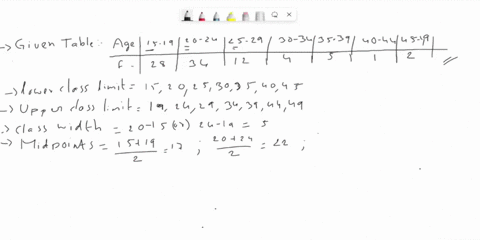 → Given Table:- Age | 15-19 | 20-24 | 25-29 | 30-34 | 35-39 | 40-44 | 45-49
f - 28 | 34 | 12 | 4 | 5 | 1 | 2
→ Lower class limit = 15, 20, 25, 30, 35, 40, 45
→ Upper class limit = 19, 24, 29, 34, 39, 44, 49
→ class width = 20-15 (or) 24-19 = 5
→ Midpoints = 15+19/2 = 17 ; 20+24/2 = 22 ;